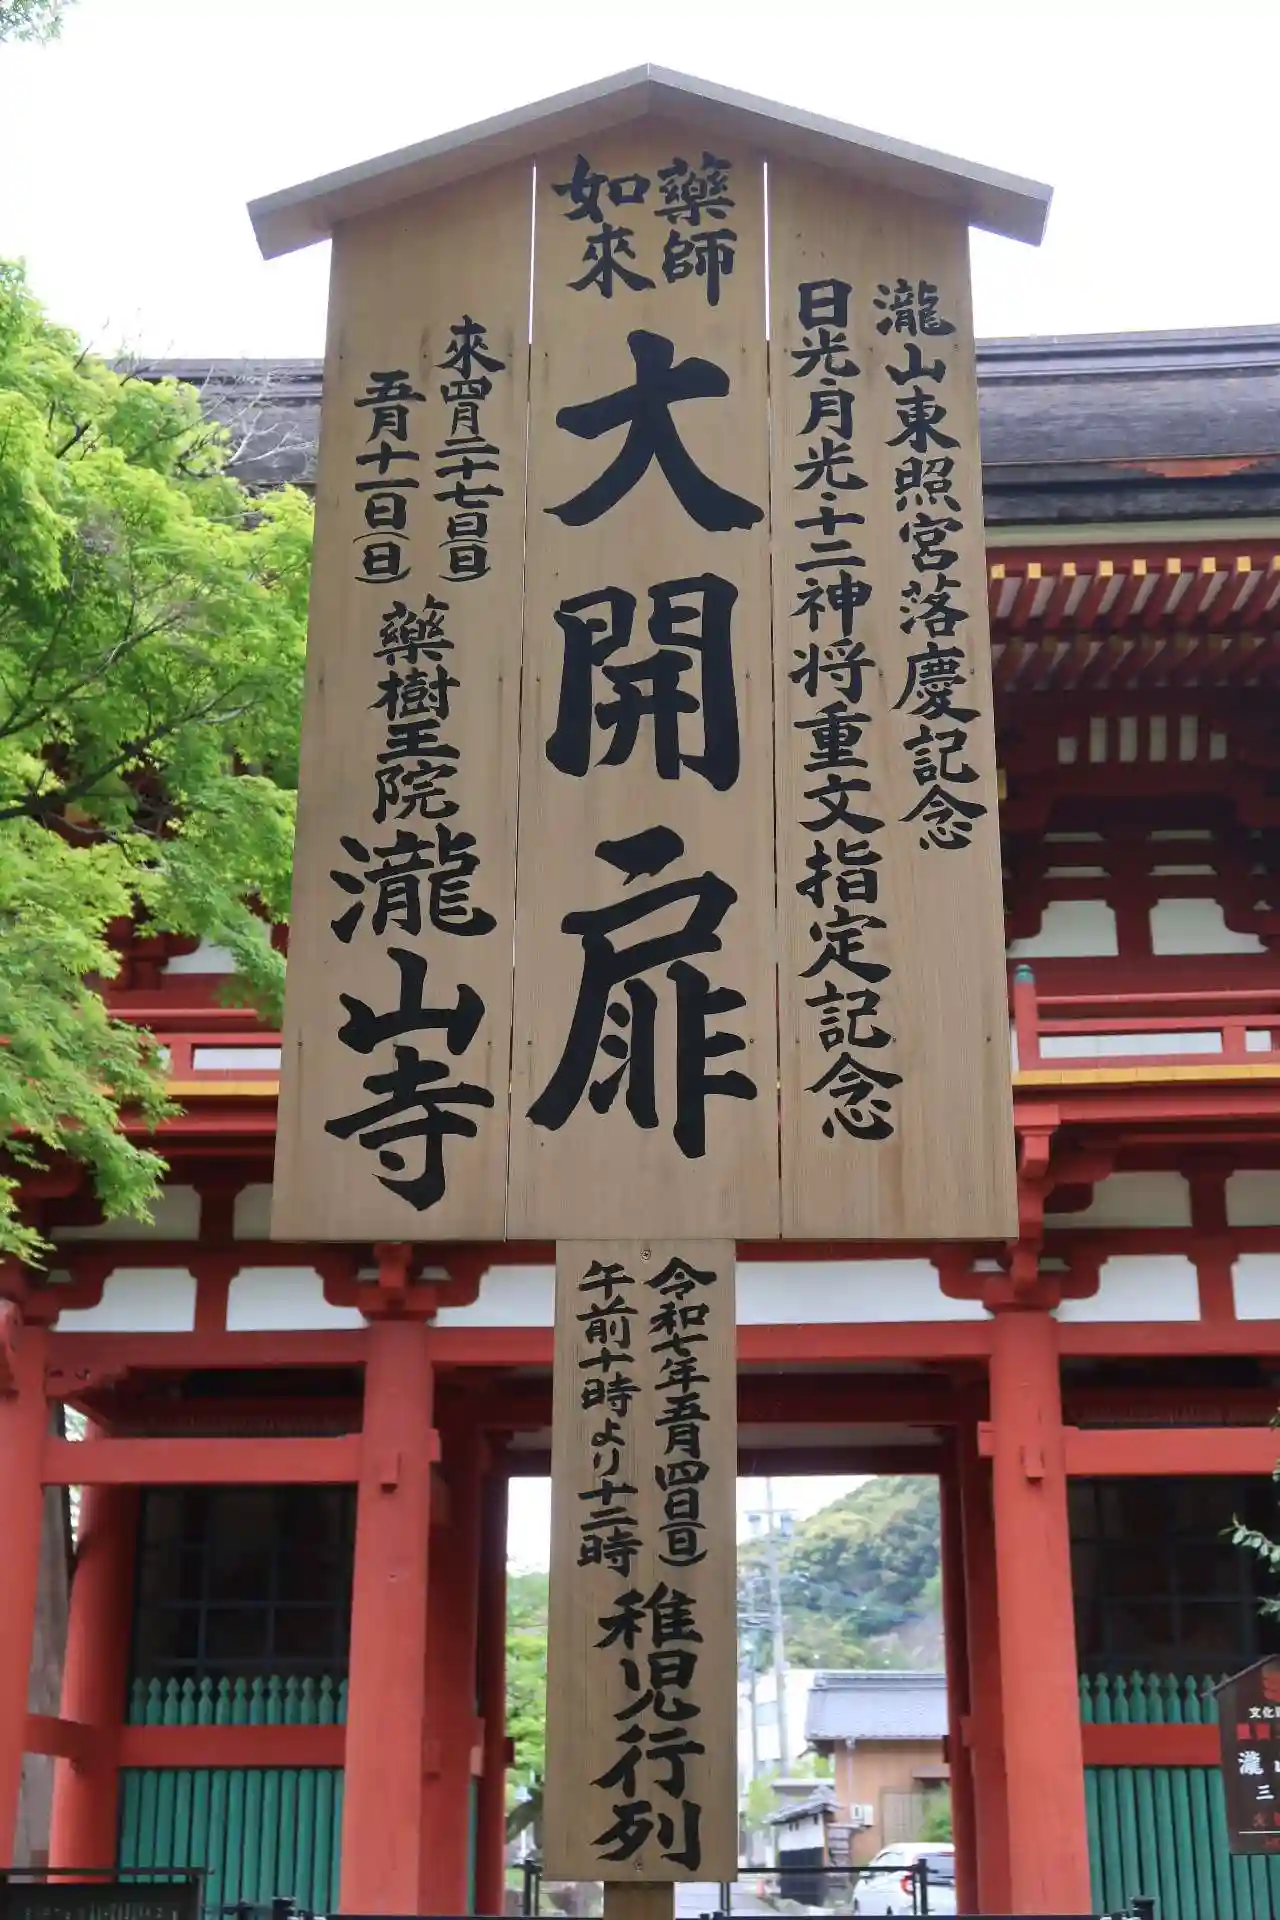 瀧山東照宮落慶記念
日光・月光・十二神将重文指定記念
藥師
如來
大開扉
來四月二十七日(日)
五月十一日(日)
藥樹王院
瀧山寺
令和七年五月四日(日)
午前十時より十二時
稚児行列
文化
瀧
三